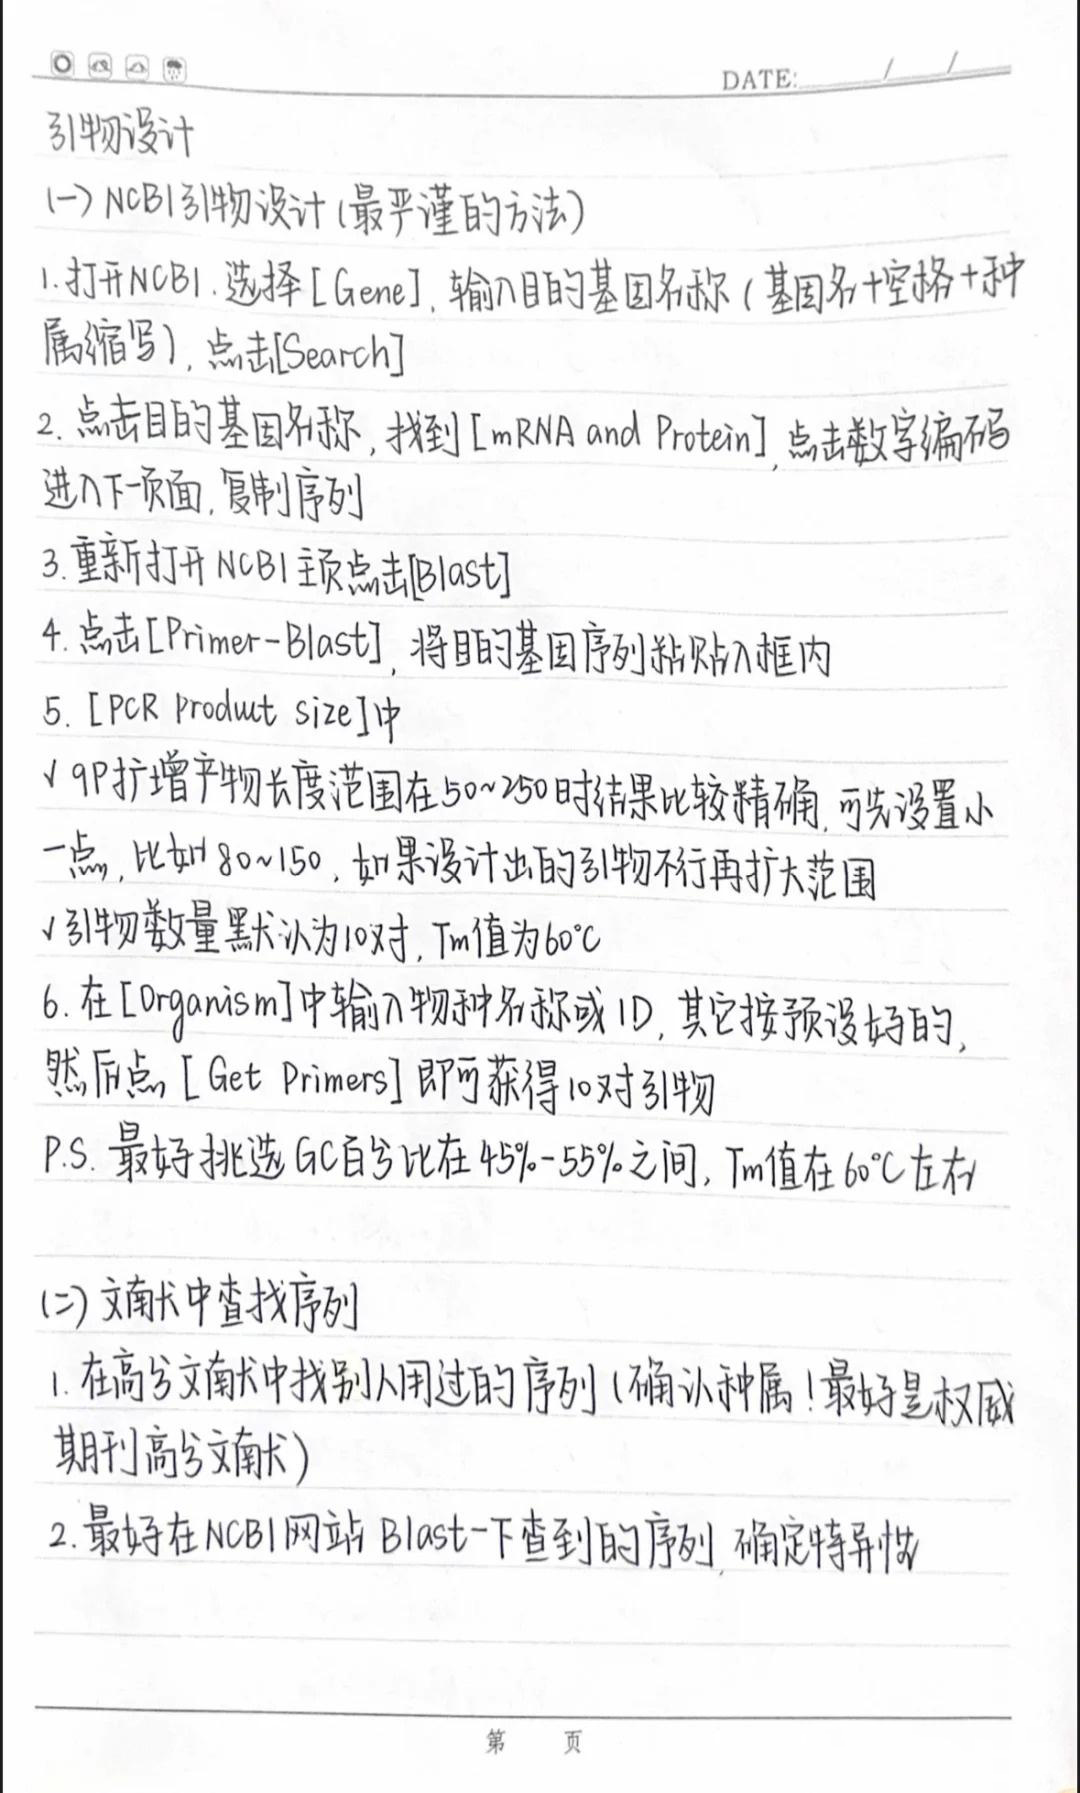 DATE: / /
引物设计
(一) NCBI引物设计(最严谨的方法)
1.打开NCBI.选择[Gene],输入目的基因名称(基因名+空格+种
属缩写),点击[Search]
2.点击目的基因名称,找到[mRNA and Protein],点击数字编码
进入下一页面,复制序列
3.重新打开NCBI主页点击[Blast]
4.点击[Primer-Blast],将目的基因序列粘贴入框内
5.[PCR Product size]中
√ qP扩增产物长度范围在50~250时结果比较精确,可先设置小
一点,比如80~150,如果设计出的引物不行再扩大范围
√引物数量默认为10对,Tm值为60℃
6.在[Organism]中输入物种名称或ID,其它按预设好的,
然后点[Get Primers]即可获得10对引物
P.S.最好挑选GC百分比在45%-55%之间,Tm值在60℃左右
(二)文献中查找序列
1.在高分文献中找别人用过的序列(确认种属!最好是权威
期刊高分文献)
2.最好在NCBI网站Blast一下查到的序列,确定特异性
第 页